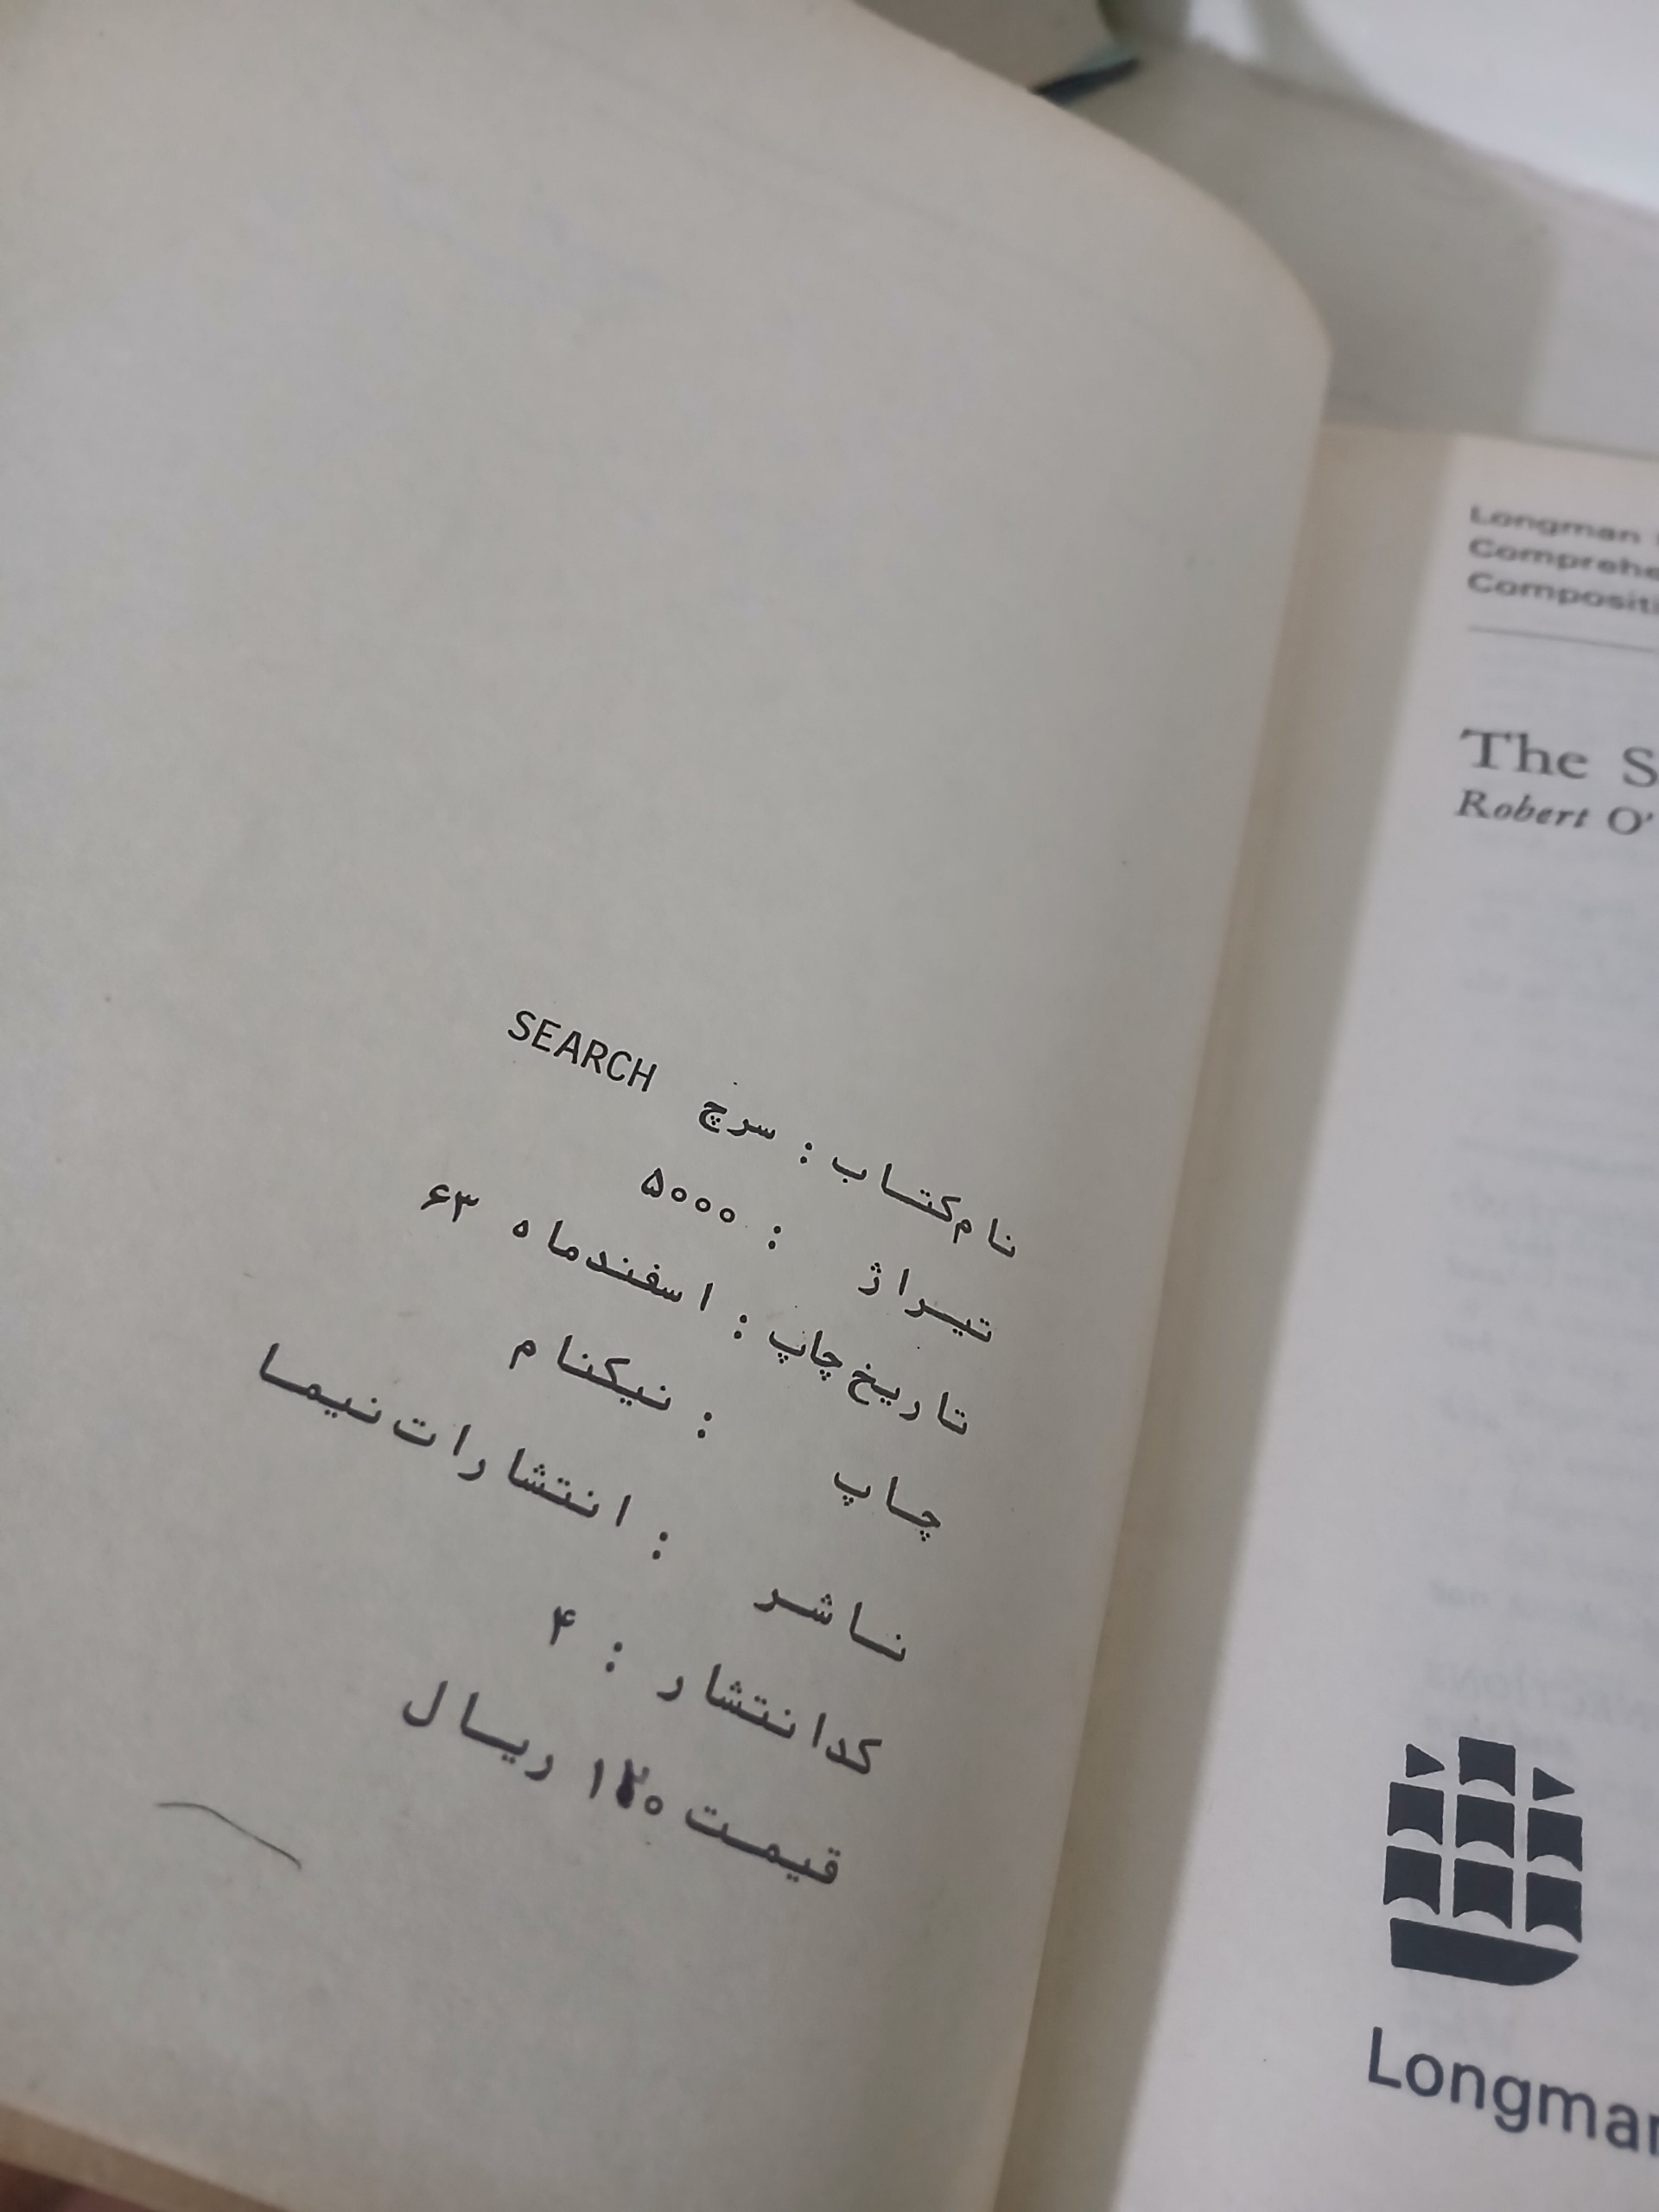 نام کتاب : سرچ SEARCH
تیراژ : ۵۰۰۰
تاریخ چاپ : اسفندماه ۶۳
چاپ : نیکنام
ناشر : انتشارات نیما
کد انتشار : ۴
قیمت ۱۲۰ ریال
Longman
Comprehe
Compositi
The S
Robert O'
Longman